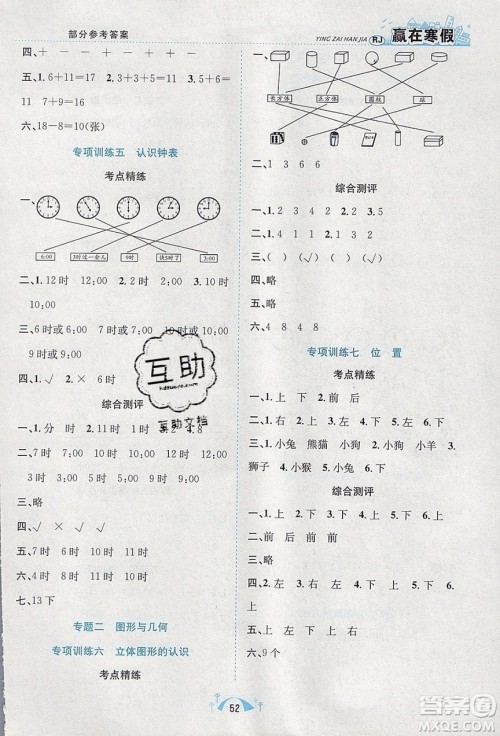 部分参考答案
YING ZAI HAN JIA
RJ
赢在寒假
四、+ − − − + −
五、1. 6+11=17 2. 3+13=16
3. 7+9=16
六、18-8=10(张)
专项训练五 认识钟表
考点精练
一、
6:00 3时过一会儿 9时 快5时了 12:00
二、1. 12时 12:00 2. 1时 1:00 3. 10时
10:00
三、8时或8:00 12时或12:00 6时或6:00
9时或9:00 4时或4:00 7时或7:00
四、1. √ 2. × 3. √ 五、略
综合测评
一、1. 分 时 2. 1时 3. 12 4. 8
二、7:00 9:00 11:00 8:00
三、略
四、√ × × √ √
五、7时 6时 10时 11时
六、1. 6时 2. 8时 3. 9时
七、13下
专题二 图形与几何
专项训练六 立体图形的认识
考点精练
一、
长方体 正方体 圆柱 球
二、1 3 6 6
综合测评
一、1. 2 4 1 2 2. 3 3. 5
二、( ) (√) ( ) (√)
三、( ) ( ) (√)
四、略
五、略
六、4 8 4 8
专项训练七 位置
考点精练
一、1. 上 下 2. 前 后
二、1. 右 2. 上 3. 右 左
三、1. 小兔 熊猫 小狗 2. 小狗 小羊 3.
狮子 4. 小猴 5. 小兔 6. 小鹿
综合测评
一、1. 上 下 2. 上 下 3. 上 下 上
二、前 后 前 后 后
三、前 后
四、2. 左 左 3. 右 右 4. 左 右
五、上 左 下 右 右
六、9个
互助
互助文档
52
答案圈